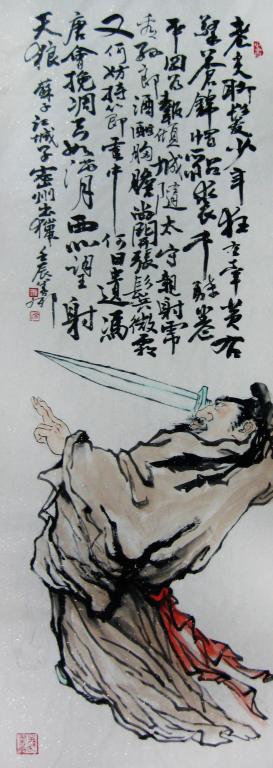 老夫聊發少年狂左牽黃右
擎蒼錦帽貂裘千騎卷
平岡為報傾城隨太守親射虎
看孫郎酒酣胸膽尚開張鬢微霜
又何妨持節雲中何日遣馮
唐會挽凋弓如滿月西北望射
天狼 蘇子江城子密州出獵 壬辰